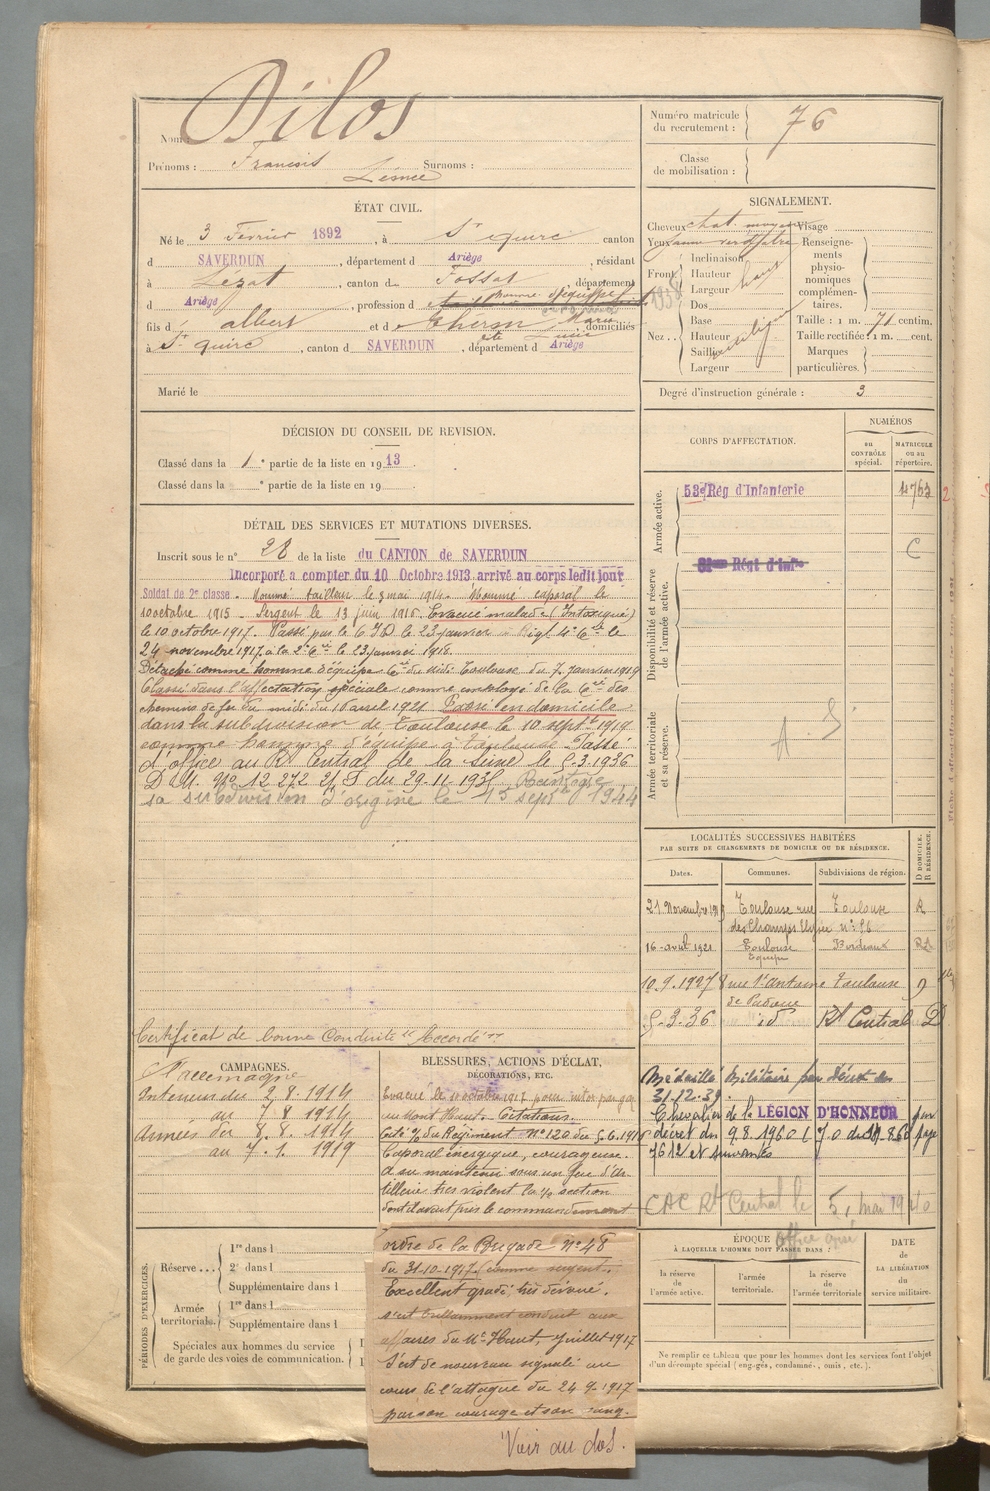 Nom : Dilos
Prénoms : Francois Surnoms :
Numéro matricule du recrutement : 76
Classe de mobilisation :
ÉTAT CIVIL.
Né le 3 Février 1892, à St Quirc canton
d SAVERDUN, département d Ariège, résidant
à Lézat, canton de Fossat département
d Ariège, profession d homme d'équipe
fils d albert et d Théron Marie, domiciliés
à St Quirc, canton d SAVERDUN, département d Ariège
Marié le
SIGNALEMENT.
Cheveux chat. moyen Visage
Yeux
Front Inclinaison
Hauteur
Largeur
Nez Dos
Base
Hauteur
Saillie
Largeur
Renseignements physionomiques complémentaires.
Taille : 1 m. 71 centim.
Taille rectifiée : 1 m. cent.
Marques particulières.
Degré d'instruction générale : 3
DÉCISION DU CONSEIL DE REVISION.
Classé dans la 1e partie de la liste en 1913.
Classé dans la e partie de la liste en 19
CORPS D'AFFECTATION.
NUMÉROS
au CONTRÔLE spécial.
MATRICULE ou au répertoire.
Armée active.
53e Rég d'Infanterie 4763
Disponibilité et réserve de l'armée active.
Régt d'Infie C
Armée territoriale et sa réserve.
A. S.
DÉTAIL DES SERVICES ET MUTATIONS DIVERSES.
Inscrit sous le n° 28 de la liste du CANTON de SAVERDUN
Incorporé a compter du 10 Octobre 1913 arrivé au corps ledit jour
Soldat de 2e classe - Nommé tailleur le 3 mai 1914. Nommé caporal le
10 octobre 1915 - Sergent le 13 juin 1916. Evacué malade (Intoxiqué)
le 10 octobre 1917. Passé par le 6 le 23 janvier 4e Cie le
24 novembre 1917 à la 2e Cie le 23 janvier 1918.
Détaché comme homme d'équipe Cie du Midi Toulouse du 7 janvier 1919
Classé dans l'affectation spéciale comme employé de la Cie des
chemins de fer du midi du 16 avril 1921 Passé en domicile
dans la subdivision de Toulouse le 10 septbre 1919
comme homme d'équipe à Toulouse Passé
d'office au Rt Central de la Seine le 5.3.1936
D.M. No 12.272 du 29.11.1935
sa subdivision d'origine le 15 septe 1944
Certificat de bonne Conduite "Accordé"
LOCALITÉS SUCCESSIVES HABITÉES
PAR SUITE DE CHANGEMENTS DE DOMICILE OU DE RÉSIDENCE.
Dates. Communes. Subdivisions de région. D DOMICILE. R RÉSIDENCE.
21 Novembre Toulouse rue Toulouse R
des Champs Elysée n° 56
16-avril 1921 Toulouse Bordeaux
Equipe
10.9.1927 8 rue St Antoine Toulouse D
de Padoue
5-3-36 id Rt Central D
Médaillé Militaire par décret du
31.12.39.
Chevalier de la LÉGION D'HONNEUR par
décret du 9.8.1960 page
7612 et suivantes
Rt Central le 5, mai 1940
CAMPAGNES.
C. l'allemagne
Intérieur du 2.8.1914
au 7 8 1914
Armées du 8.8.1914
au 7.1.1919
BLESSURES, ACTIONS D'ÉCLAT, DÉCORATIONS, ETC.
Evacué le 10 octobre 1917 pour intox. par gaz
au Mont Haut. Citations.
Cité O/ du Régiment N° 120 du 5.6.1916
Caporal énergique, courageux.
A su maintenir sous un feu d'ar-
tillerie très violent la 1/2 section
dont il avait pris le commandement
ordre de la Brigade N° 48
du 31-10-1917 comme sergent.
Excellent gradé, très dévoué.
s'est brillamment conduit aux
affaires du Mt Haut, Juillet 1917
S'est de nouveau signalé au
cours de l'attaque du 24.9.1917
par son courage et son sang-
Voir au dos.
PÉRIODES D'EXERCICES.
Réserve 1re dans l
2e dans l
Supplémentaire dans l
Armée territoriale. 1re dans l
Supplémentaire dans l
Spéciales aux hommes du service de garde des voies de communication.
ÉPOQUE
À LAQUELLE L'HOMME DOIT PASSER DANS :
la réserve de l'armée active.
l'armée territoriale.
la réserve de l'armée territoriale
DATE DE LA LIBÉRATION du service militaire.
Ne remplir ce tableau que pour les hommes dont les services font l'objet
d'un décompte spécial (engagés, condamnés, omis, etc.).